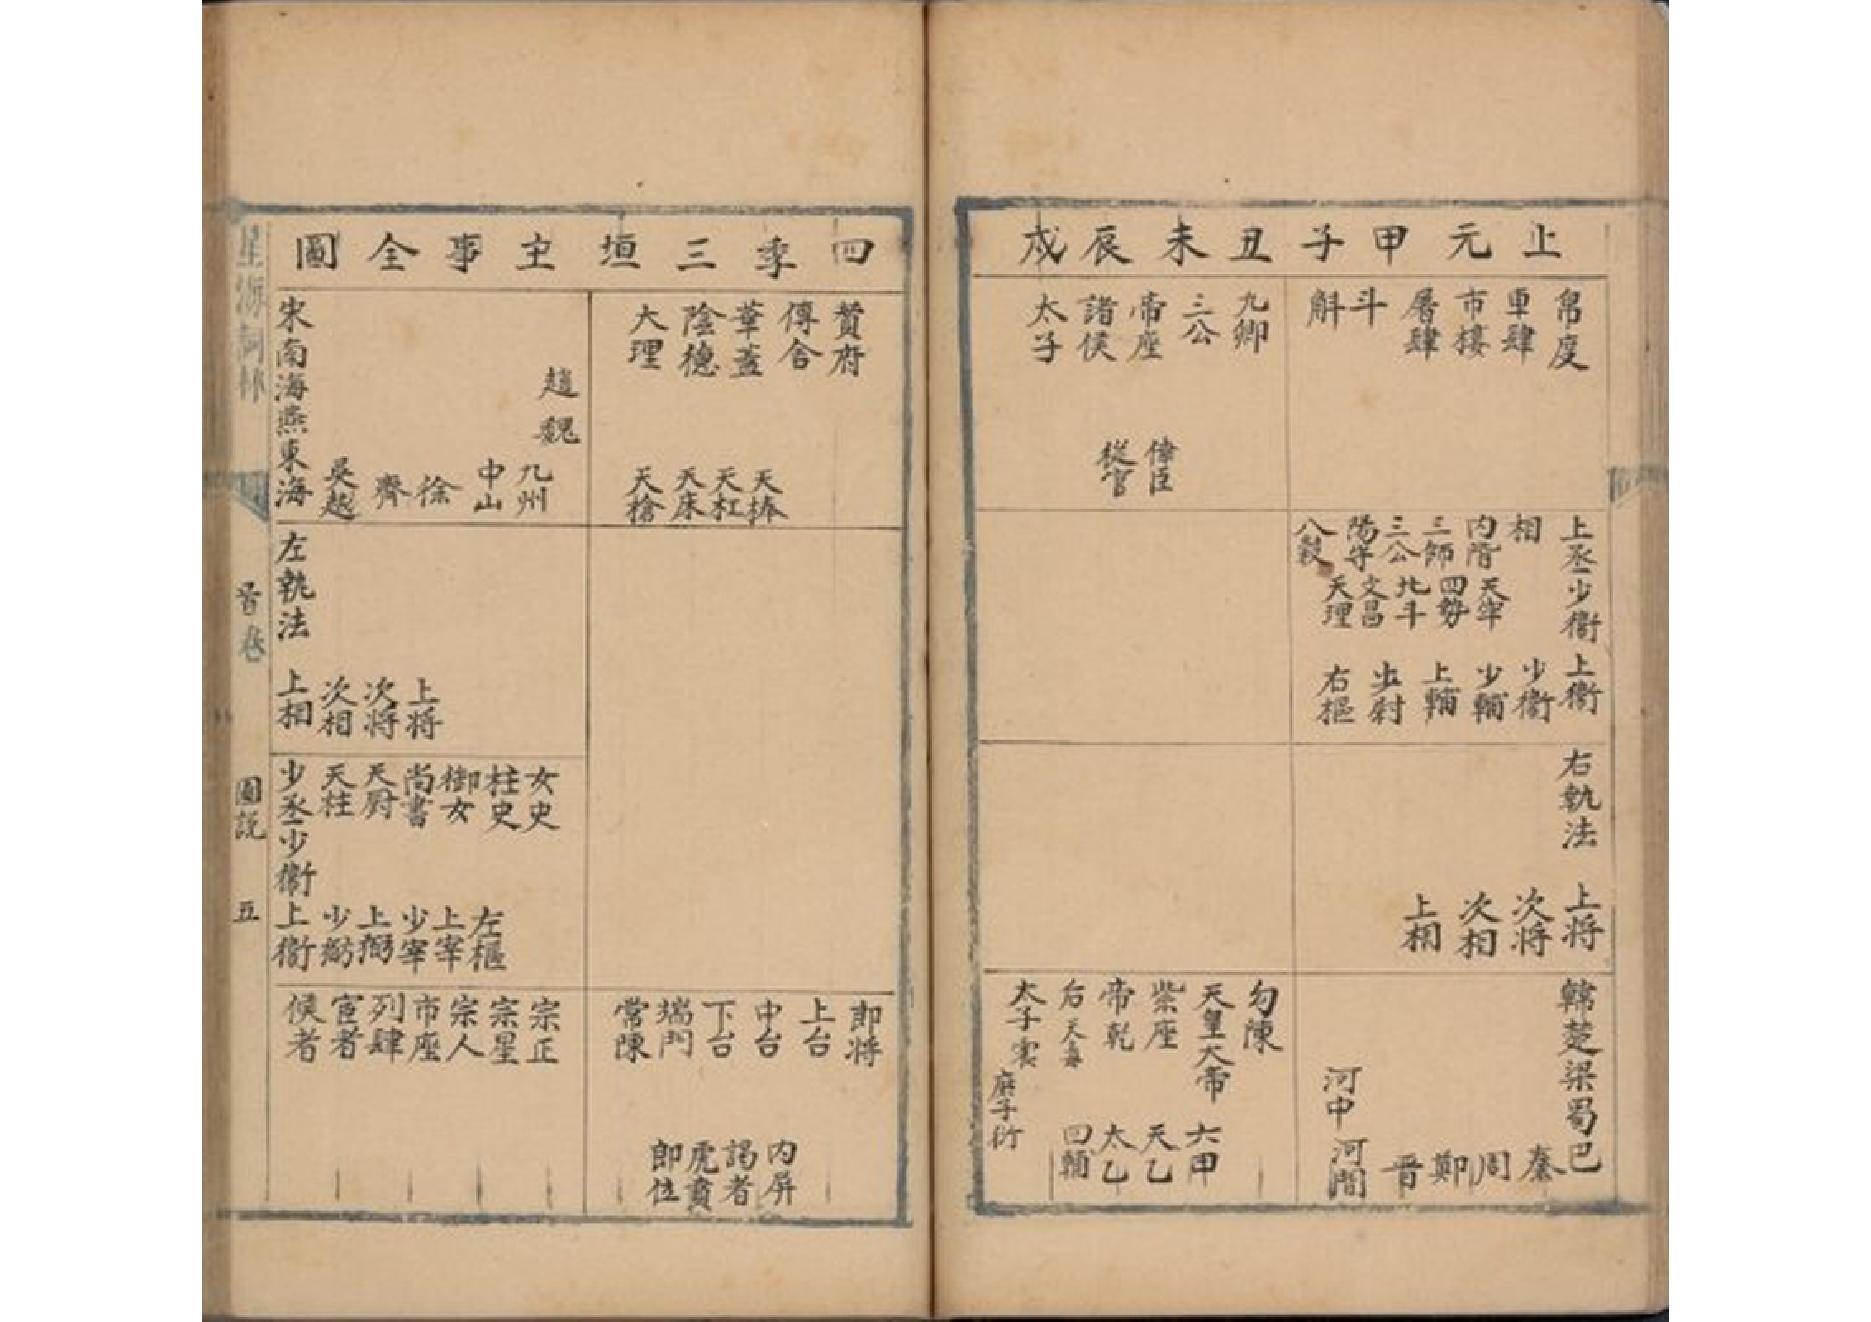 上元甲子丑未辰戍
帛度
車肆
市樓
屠肆
斗
斛
九卿
三公
帝座
諸侯
太子
倖臣
從官
上丞少衛上衛
相
內階
三師
三公
陽守
八穀
天牢
四勢
北斗
文昌
天理
少衛
少輔
上輔
少尉
右樞
右執法
上将
次将
次相
上相
韓楚梁蜀巴
秦
周
鄭
晋
河中
河間
勾陳
天皇大帝
紫座
帝乾
后天
太子
庶子
六甲
天乙
太乙
四輔
四季三垣主事全圖
傳舍
華蓋
陰德
大理
天棒
天杠
天床
天槍
趙
魏
九州
中山
徐
齊
吳越
宋南海燕東海
左執法
上将
次将
次相
上相
女史
柱史
御女
尚書
天廚
天柱
少丞少衛上衛
左樞
上宰
少宰
上弼
少弼
即将
上台
中台
下台
端門
常陳
內屏
謁者
虎賁
郎位
宗正
宗星
宗人
市座
列肆
宦者
候者
星海詞林
首卷
圖説
五